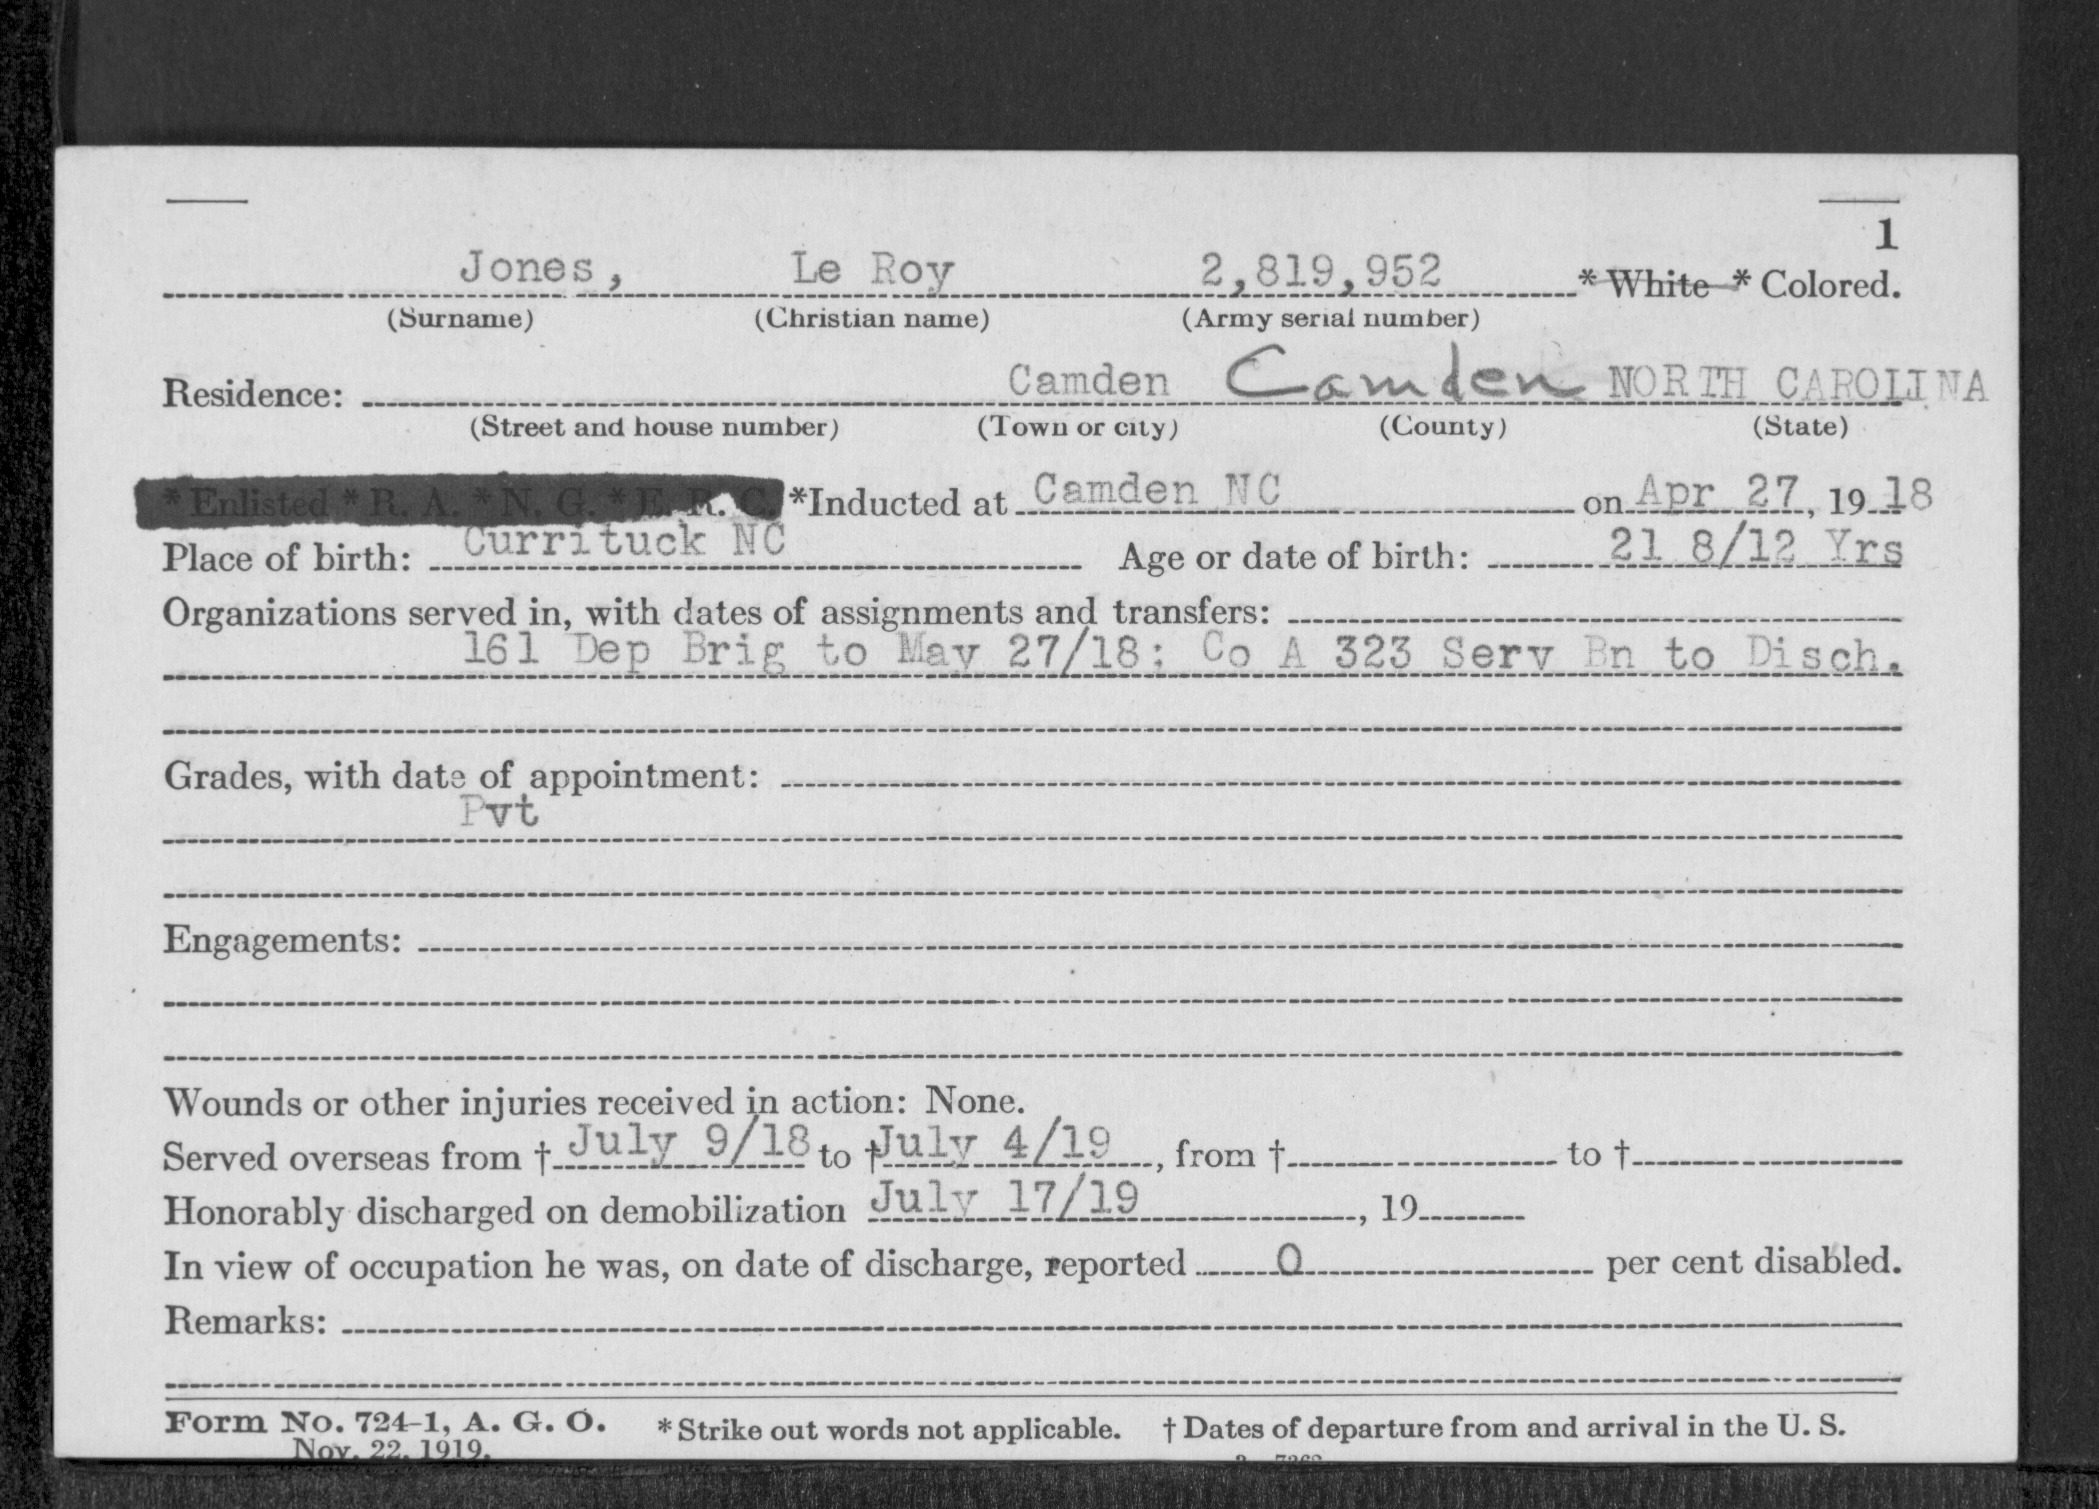 1
Jones, Le Roy 2,819,952 * White * Colored.
(Surname) (Christian name) (Army serial number)
Residence: Camden Camden NORTH CAROLINA
(Street and house number) (Town or city) (County) (State)
* Enlisted * R. A. * N. G. * E. R. C. *Inducted at Camden NC on Apr 27, 19 18
Place of birth: Currituck NC Age or date of birth: 21 8/12 Yrs
Organizations served in, with dates of assignments and transfers:
161 Dep Brig to May 27/18; Co A 323 Serv Bn to Disch.
Grades, with date of appointment:
Pvt
Engagements:
Wounds or other injuries received in action: None.
Served overseas from † July 9/18 to † July 4/19, from † to †
Honorably discharged on demobilization July 17/19, 19
In view of occupation he was, on date of discharge, reported 0 per cent disabled.
Remarks:
Form No. 724-1, A. G. O. * Strike out words not applicable. † Dates of departure from and arrival in the U. S.
Nov. 22, 1919.